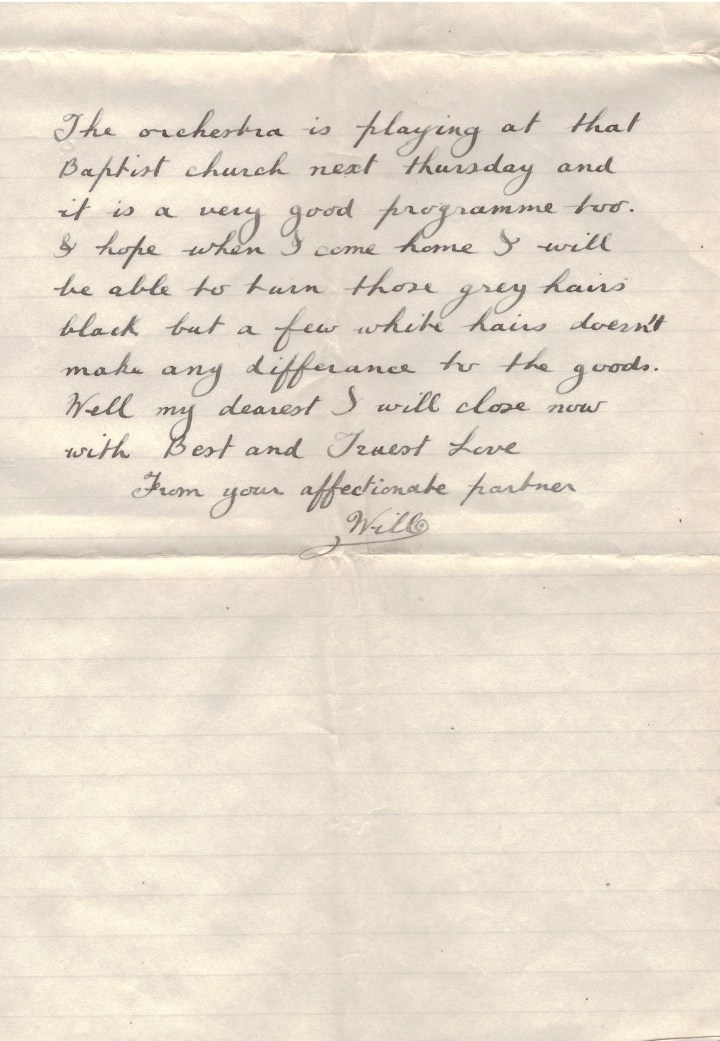 The orchestra is playing at that
Baptist church next thursday and
it is a very good programme too.
I hope when I come home I will
be able to turn those grey hairs
black but a few white hairs doesn't
make any differance to the goods.
Well my dearest I will close now
with Best and Truest Love
From your affectionate partner
Will